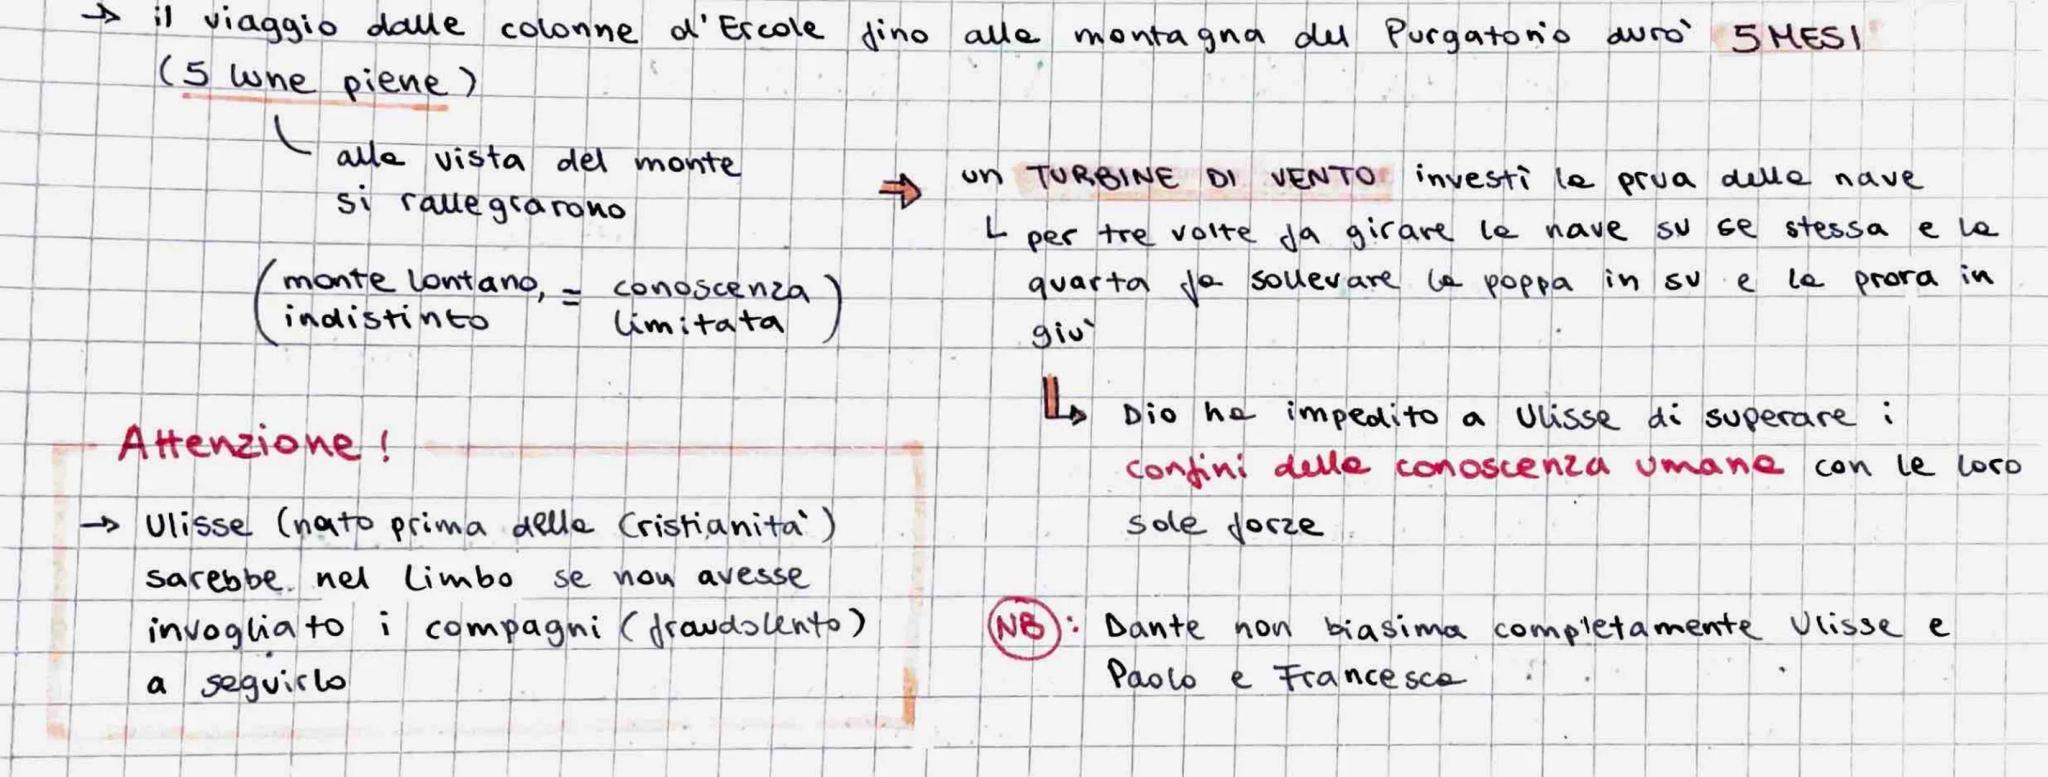 → il viaggio dalle colonne d'Ercole fino alla montagna del Purgatorio durò 5 MESI
(5 lune piene)
alla vista del monte
si rallegrarono
(monte lontano, = conoscenza
indistinto limitata)
→ un TURBINE DI VENTO investì la prua della nave
per tre volte fa girare la nave su se stessa e la
quarta fa sollevare la poppa in su e la prora in
giù
Dio ha impedito a Ulisse di superare i
confini della conoscenza umana con le loro
sole forze
Attenzione!
→ Ulisse (nato prima della Cristianità)
sarebbe nel Limbo se non avesse
invogliato i compagni (fraudolento)
a seguirlo
NB: Dante non biasima completamente Ulisse e
Paolo e Francesca